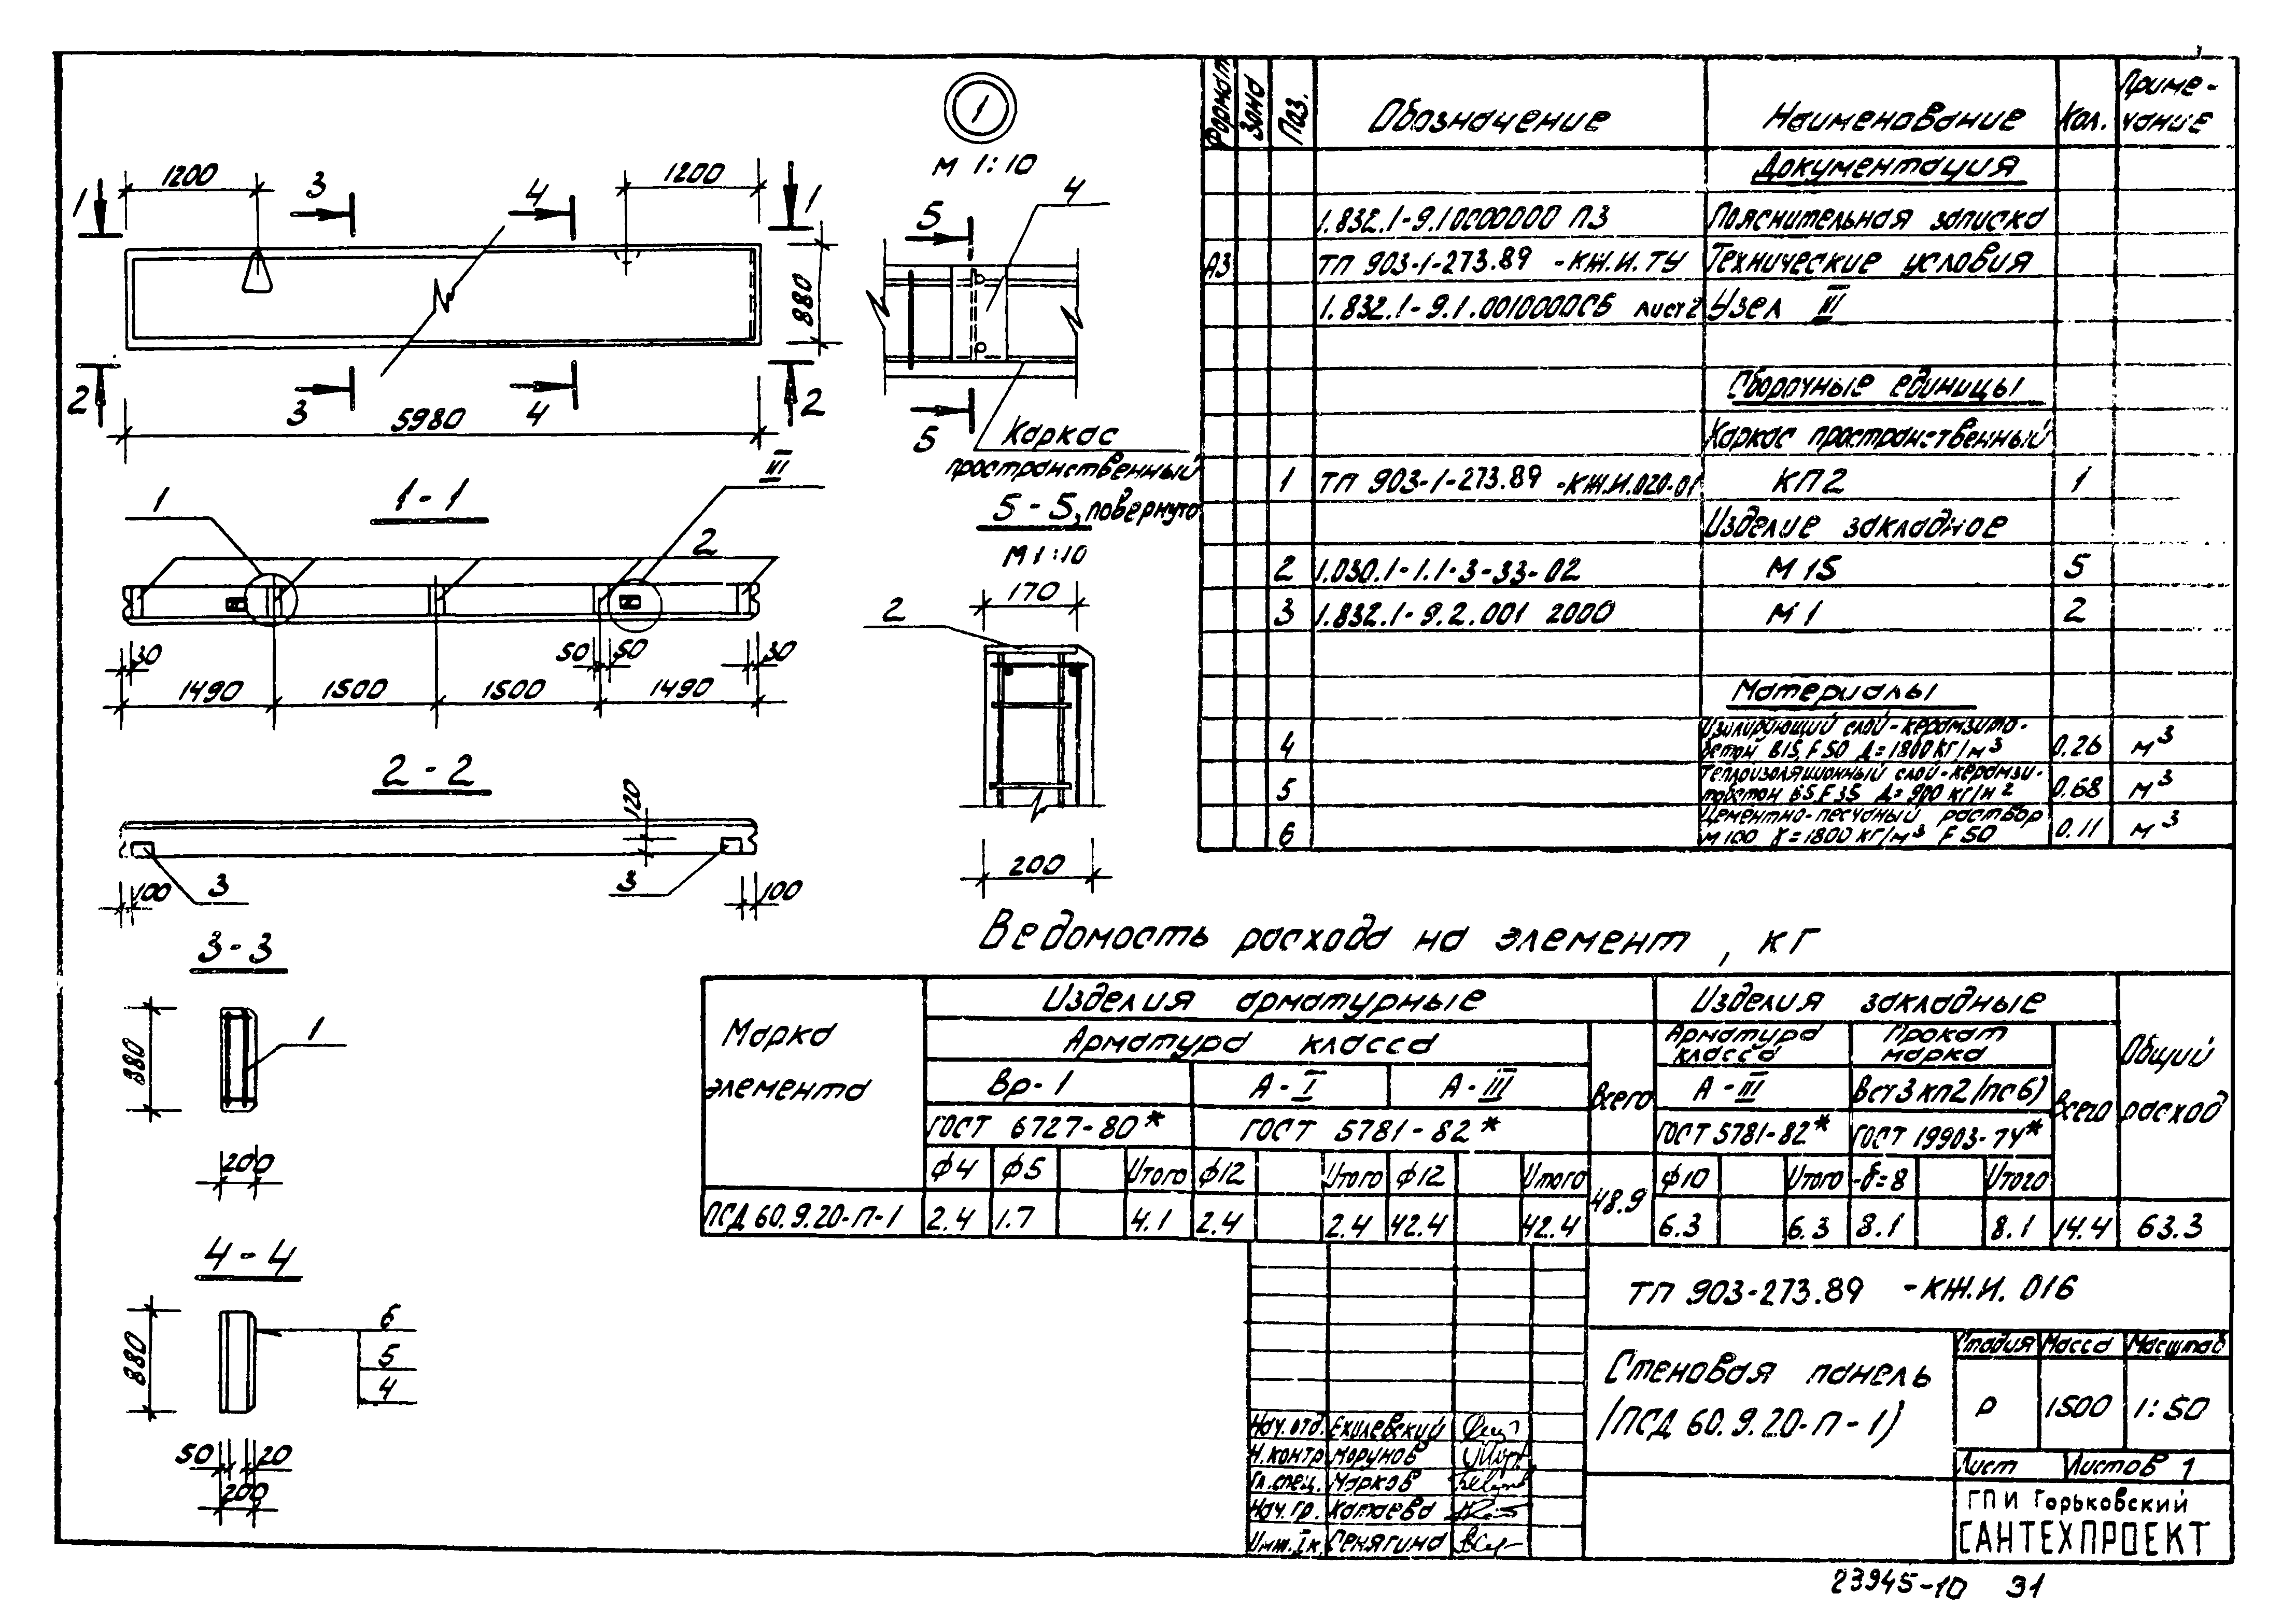 1200
1200
1
3
4
1
880
2
3
4
2
5980
1
М 1:10
5
4
5
Каркас
пространственный
1
1-1
III
2
30
50
50
30
1490
1500
1500
1490
5-5, повернуто
М 1:10
170
2
200
2-2
120
3
3
100
100
3-3
880
1
200
4-4
880
6
5
4
50
20
200
Формат
Зона
Поз.
Обозначение
Наименование
Кол.
Приме-
чание
Документация
1.832.1-9.10000000 ПЗ Пояснительная записка
А3 ТП 903-1-273.89 -КЖ.И.ТУ Технические условия
1.832.1-9.1.0010000СБ лист 2 Узел III
Сборочные единицы
Каркас пространственный
1 ТП 903-1-273.89 -КЖ.И.020-01 КП2 1
Изделие закладное
2 1.030.1-1.1-3-33-02 М15 5
3 1.832.1-9.2.001 2000 М1 2
Материалы
Изолирующий слой-керамзито-
4 бетон В15, F50 Д=1800кг/м³ 0.26 м³
Теплоизоляционный слой-керамзи-
5 тобетон В5, F35 Д=900 кг/м² 0.68 м³
Цементно-песчаный раствор
6 М100 γ=1800кг/м³ F50 0.11 м³
Ведомость расхода на элемент, кг
Марка
элемента
Изделия арматурные
Изделия закладные
Общий
расход
Арматура класса
Всего
Арматура
класса
Прокат
марка
Всего
Вр-1
А-I
А-III
А-III
Вст3кп2(пс6)
ГОСТ 6727-80*
ГОСТ 5781-82*
ГОСТ 5781-82*
ГОСТ 19903-74*
ф4 ф5 Итого ф12 Итого ф12 Итого ф10 Итого -δ=8 Итого
ПСД 60.9.20-П-1 2.4 1.7 4.1 2.4 2.4 42.4 42.4 48.9 6.3 6.3 8.1 8.1 14.4 63.3
ТП 903-273.89 -КЖ.И. 016
Стеновая панель
(ПСД 60.9.20-П-1)
Стадия Масса Масштаб
Р 1500 1:50
Лист Листов 1
ГПИ Горьковский
САНТЕХПРОЕКТ
Нач. отд. Ехилевский
Н.контр Морунов
Гл.спец. Марков
Нач. гр. Катаева
Инж. I к. Сенягина
23945-10 31